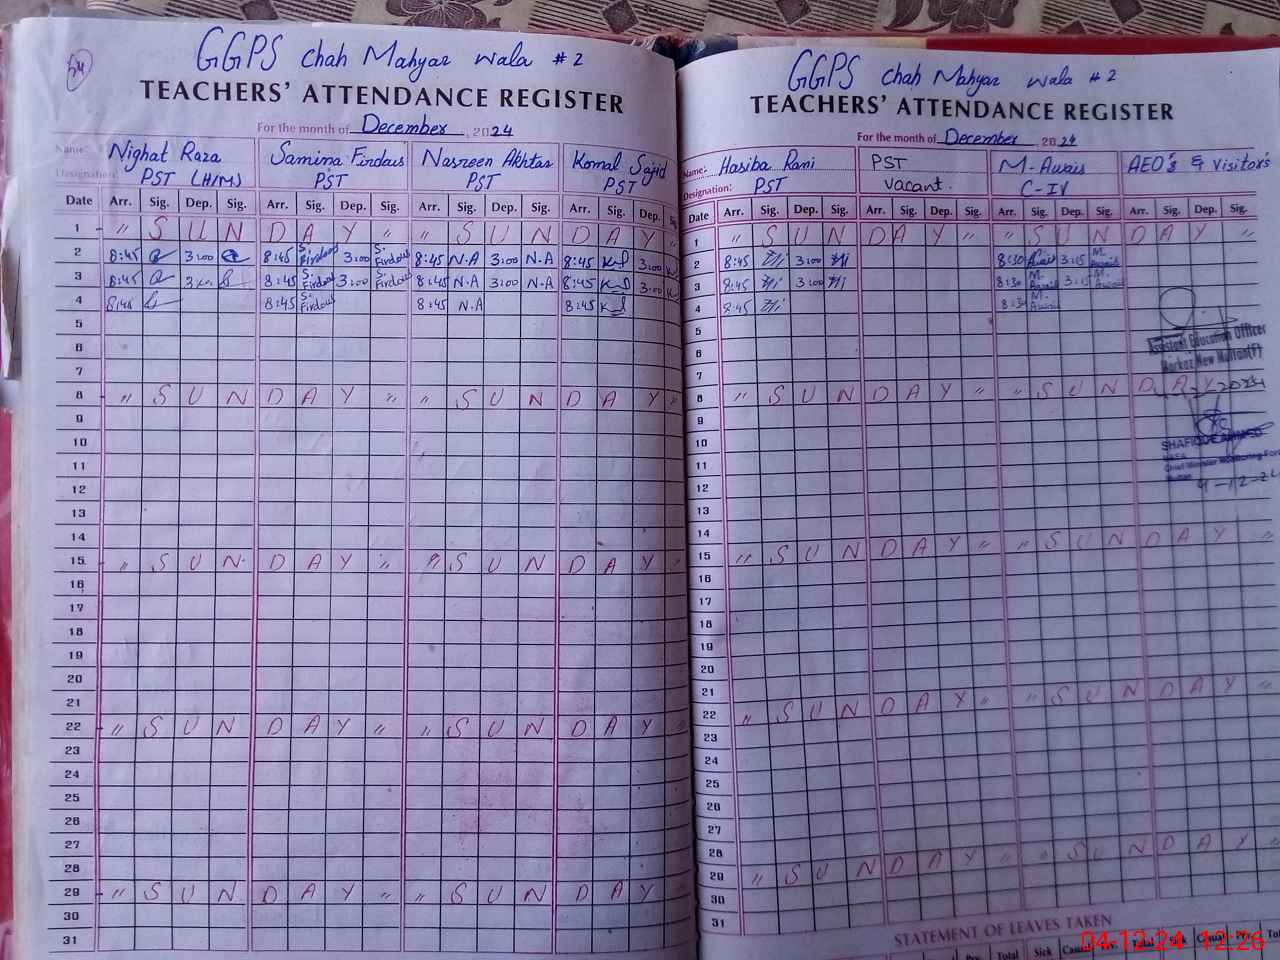 54
GGPS chah Mahyar wala #2
TEACHERS' ATTENDANCE REGISTER
For the month of December, 2024
Name: Nighat Raza Samina Firdaus Nasreen Akhtar Komal Sajid
Designation: PST (H/MS) PST PST PST
Date Arr. Sig. Dep. Sig. Arr. Sig. Dep. Sig. Arr. Sig. Dep. Sig. Arr. Sig. Dep.
1 " S U N D A Y " " S U N D A Y "
2 8:45 3:00 8:45 S. Firdous 3:00 S. Firdous 8:45 N.A 3:00 N.A 8:45 3:00
3 8:45 3:00 8:45 S. Firdous 3:00 S. Firdous 8:45 N.A 3:00 N.A 8:45 3:00
4 8:45 8:45 S. Firdous 8:45 N.A 8:45
5
6
7
8 " S U N D A Y " " S U N D A Y "
9
10
11
12
13
14
15 " S U N D A Y " " S U N D A Y "
16
17
18
19
20
21
22 " S U N D A Y " " S U N D A Y "
23
24
25
26
27
28
29 " S U N D A Y " " S U N D A Y "
30
31
GGPS chah Mahyar wala #2
TEACHERS' ATTENDANCE REGISTER
For the month of December 2024
Name: Hasiba Rani PST M-Awais AEO's & Visitor's
Designation: PST Vacant. C-IV
Date Arr. Sig. Dep. Sig. Arr. Sig. Dep. Sig. Arr. Sig. Dep. Sig. Arr. Sig. Dep. Sig.
1 " S U N D A Y " " S U N D A Y "
2 8:45 3:00 8:30 M. Awais 3:15 M. Awais
3 8:45 3:00 8:30 M. Awais 3:15 M. Awais
4 8:45 8:30 M. Awais
5
Assistant Education Officer
6
Markaz New Multan(F)
7
8 " S U N D A Y " " S U N D A Y
9
10
SHAFIQUE AHMED
11
Chief Minister Monitoring Force
Multan
12
4-12-24
13
14
15 " S U N D A Y " " S U N D A Y "
16
17
18
19
20
21
22 " S U N D A Y " " S U N D A Y "
23
24
25
26
27
28
29 " S U N D A Y " " S U N D A Y "
30
31
STATEMENT OF LEAVES TAKEN
Total Sick Casual Prv. Total Sick Casual Prv. Total
04.12.24 12:26